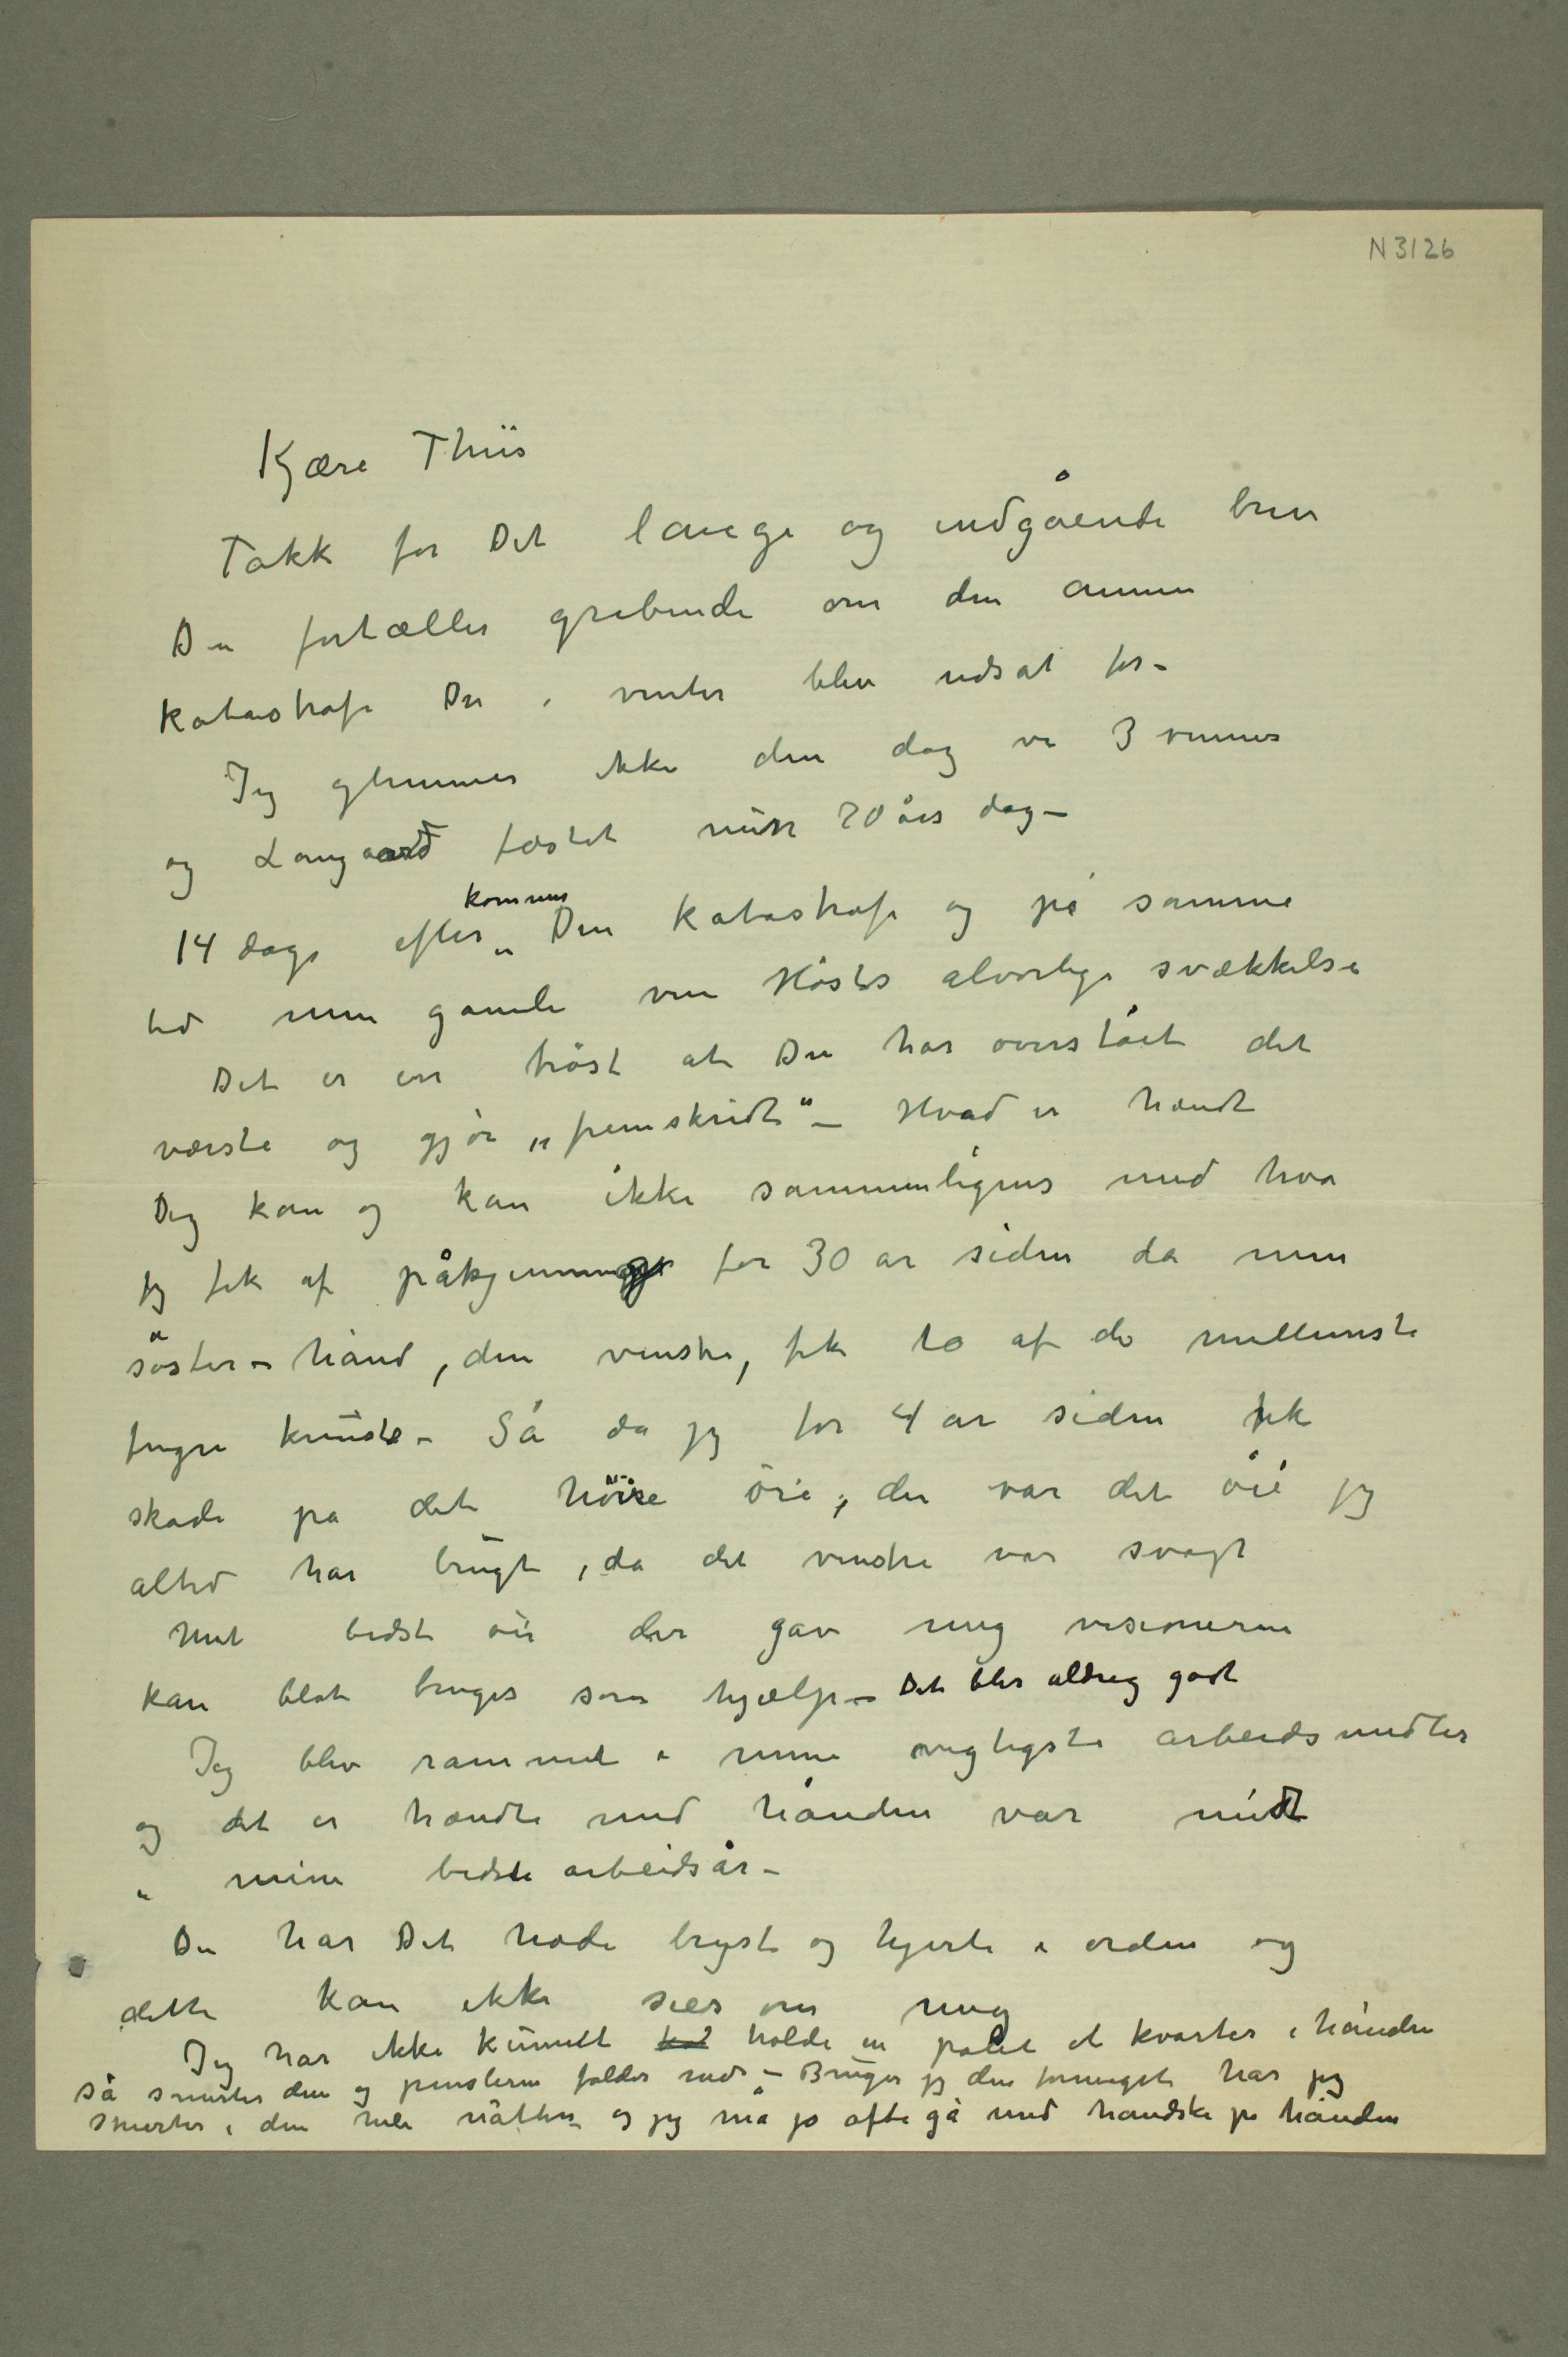 N 3126
Kjære Thiis
Takk for Dit lange og indgående brev
Du fortæller gribende om den annen
katastrofe Du i vinter blev udsat for –
Jeg glemmer ikke den dag vi 3 venner
og Langaard festet min 70 års dag –
kommer
14 dage efter Din katastrofe og på samme
tid min gamle ven Høsts alvorlige svækkelse
Det er en trøst at Du har overstået det
værste og gjør „fremskridt“ – Hvad er hændt
Dig kan og kan ikke sammenlignes med hva
jeg fik af påkjenninger for 30 år siden da min
søster – hånd, den venstre, fik to af de mellemste
fingre knuste – Så da jeg for 4 år siden fik
skade på det høire øie, der var det øie jeg
altid har brugt, da det venstre var svagt
Mit bedste øie der gav mig visionerne
kan blot bruges som hjælp – Det blir aldrig godt
Jeg blev rammet i mine vigtigste arbeidsmidler
og det er hændte med hånden var midt
i mine bedste arbeidsår –
Du har Dit hode bryst og hjerte i orden og
dette kan ikke sies om mig
Jeg har ikke kunnet holde en palet et kvarter i hånden
så smerter den og penslerne falder ned – Bruger jeg den formeget har jeg
smerter i den hele natten og jeg må jo ofte gå med handske på hånden